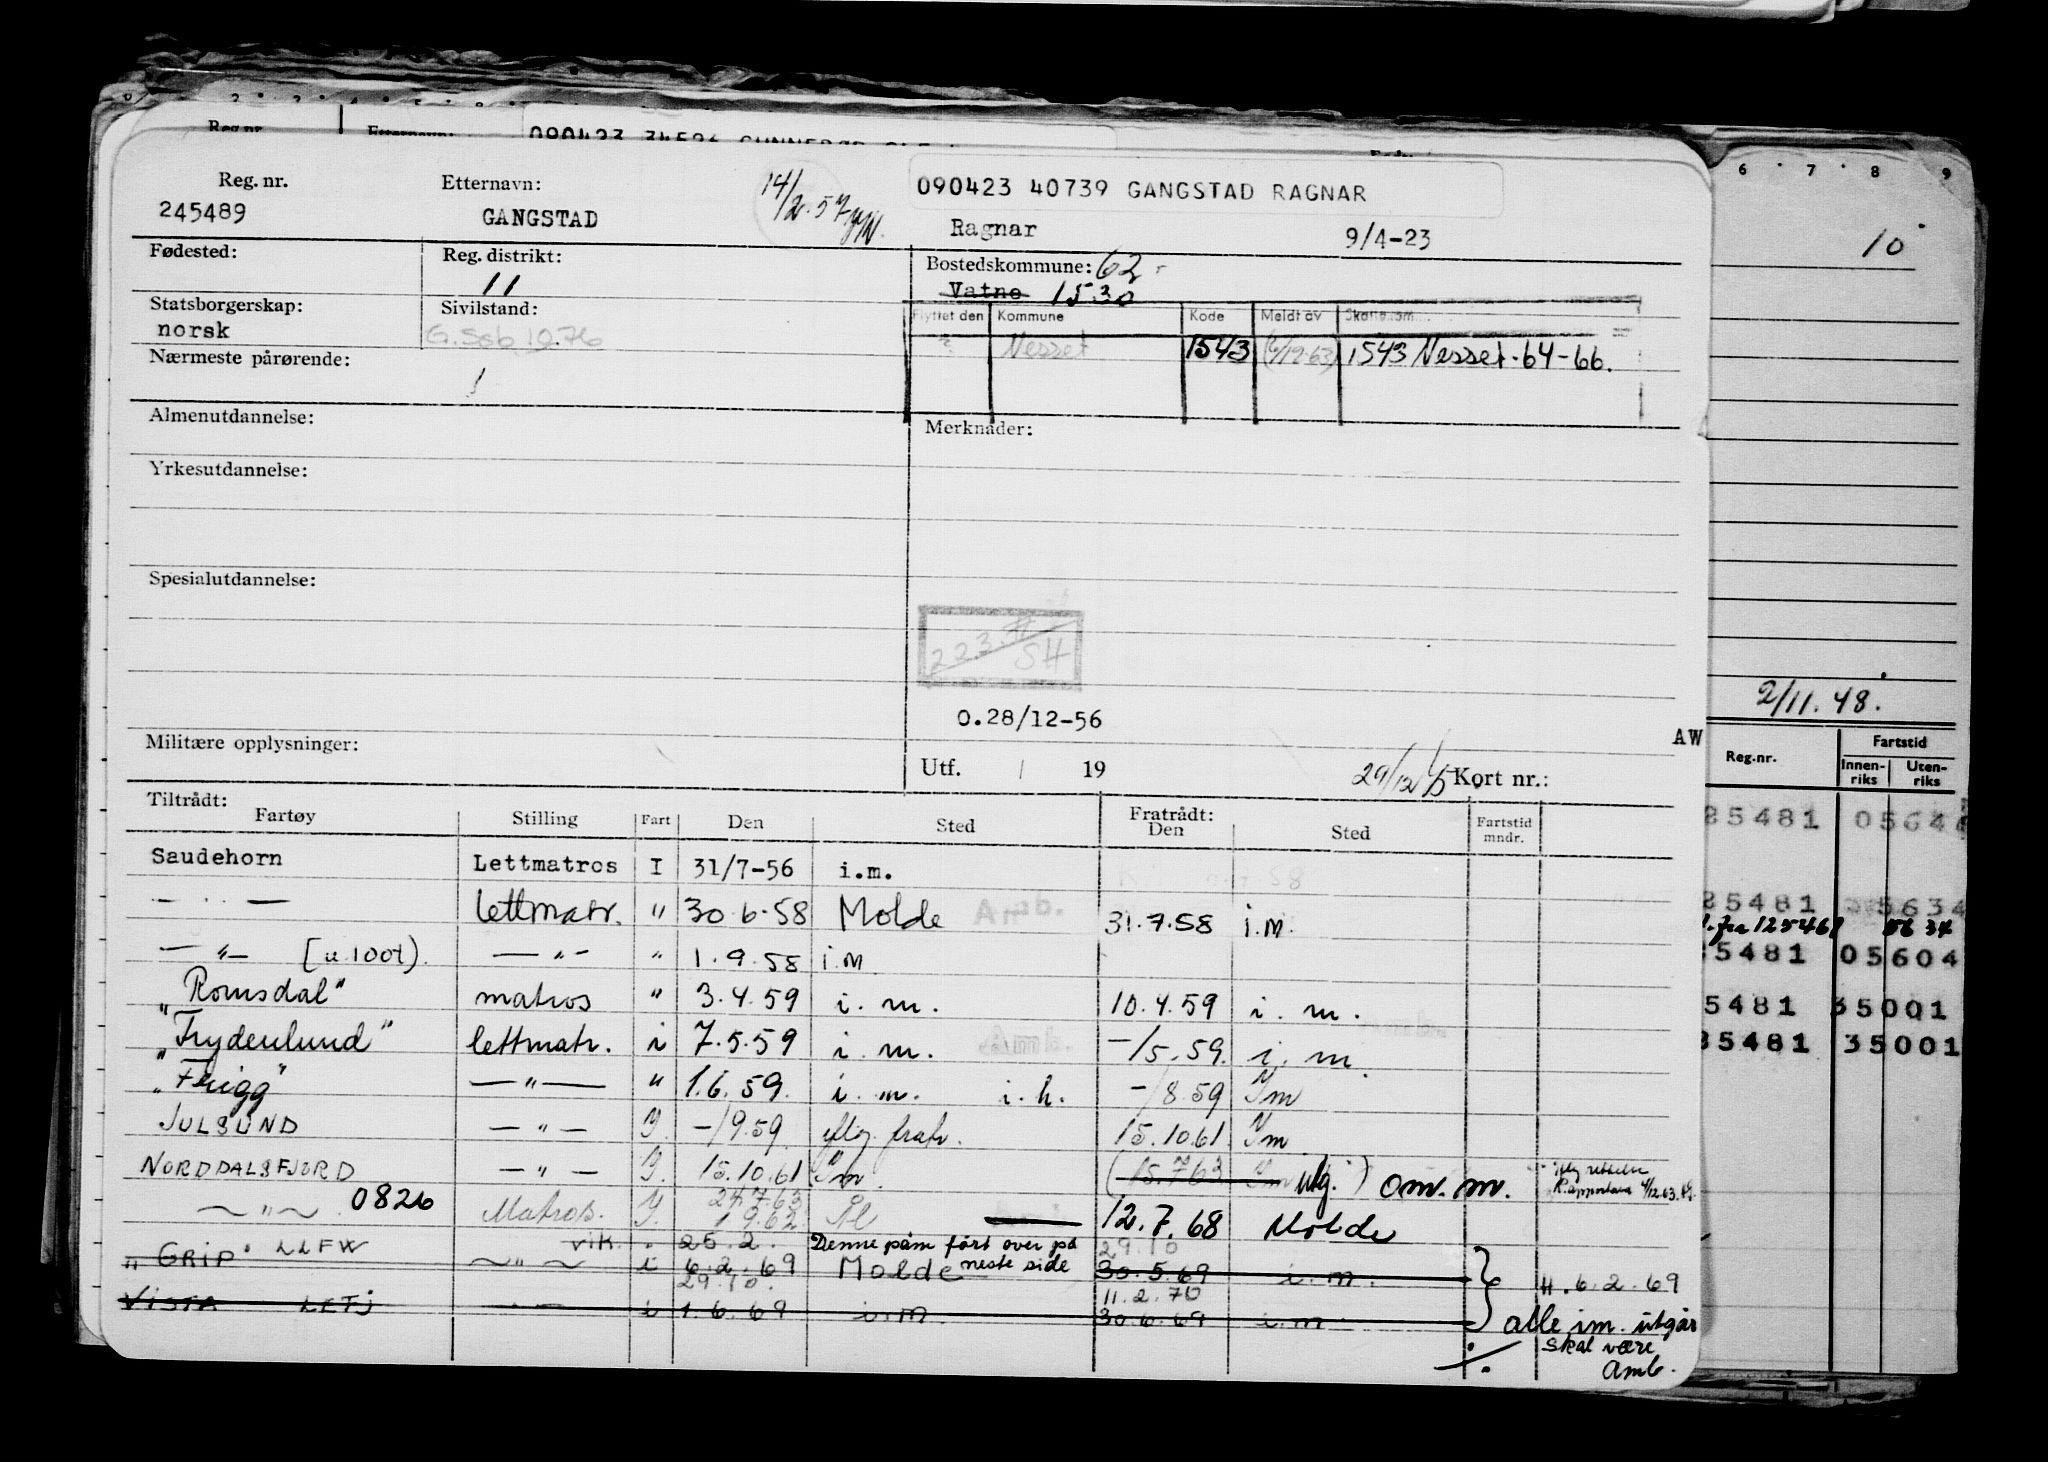 Reg. nr. Etternavn: 14/2.57 090423 40739 GANGSTAD RAGNAR
245489 GANGSTAD Ragnar 9/4-23
Fødested: Reg. distrikt: 11 Bostedskommune: 62
Vatne 1530
Statsborgerskap: norsk Sivilstand: Flyttet den Kommune Kode Meldt av
Nesset 1543 1543 Nesset-64-66.
Nærmeste pårørende:
Almenutdannelse: Merknader:
Yrkesutdannelse:
Spesialutdannelse:
223 SH
0.28/12-56
Militære opplysninger: AW
Utf. / 19 29/12 Kort nr.:
Tiltrådt: Fratrådt:
Fartøy Stilling Fart Den Sted Den Sted Fartstid mndr.
Saudehorn Lettmatros I 31/7-56 i.m.
— — lettmatr. " 30.6.58 Molde 31.7.58 i.m.
— " — — " — " 1.9.58 i.m
"Romsdal" matros " 3.4.59 i. m. 10.4.59 i. m.
"Frydenlund" lettmatr. i 7.5.59 i. m. -/5.59. i. m.
"Frigg" — " — " 1.6.59. i. m. i. h. -/8.59 Im
JULSUND — " — -/9.59 flg. fratr. 15.10.61 Im
NORDDALSFJORD — " — 15.10.61 Im (15.7.63 Im utg.) om. m.
— " — 0826 Matros. 24.7.63 1.9.62 Ål 12.7.68 Molde
vik. 25.2. Denne påm ført over på neste side 29.10
"GRIP" LLFW — " — i 6.2.69 Molde 30.5.69 i.m. H. 6.2.69
29.10. 11.2.70
VISTA LETJ — " — i 1.6.69 i.m. 30.6.69 i.m alle im. utgår
skal være
Amb.
6 7 8 9
10
2/11.48.
Reg.nr. Fartstid
Innen-riks Uten-riks
25481
25481 5634
5481 05604
5481 35001
35481 35001